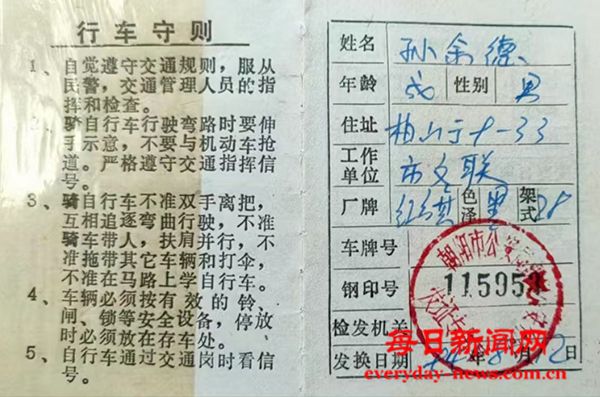 行车守则
1、自觉遵守交通规则，服从
民警，交通管理人员的指
挥和检查。
2、骑自行车行驶弯路时要伸
手示意，不要与机动车抢
道。严格遵守交通指挥信
号。
3、骑自行车不准双手离把，
互相追逐弯曲行驶，不准
骑车带人，扶肩并行，不
准拖带其它车辆和打伞，
不准在马路上学自行车。
4、车辆必须按有效的铃、
闸、锁等安全设备，停放
时必须放在存车处。
5、自行车通过交通岗时看信
号。
姓名 孙余德
年龄 成 性别 男
住址 柏山 9-33
工作单位 市文联
厂牌 红旗 色泽 黑 架式 28
车牌号
朝阳市公安
钢印号 11595
检发机关
发换日期 年 8月12日
每日新闻网
everyday-news.com.cn